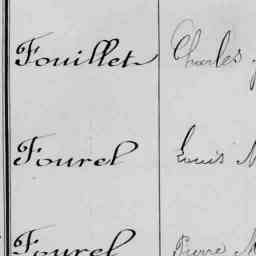 Fouillet Charles
Fourel Louis M
Fourel Pierre M